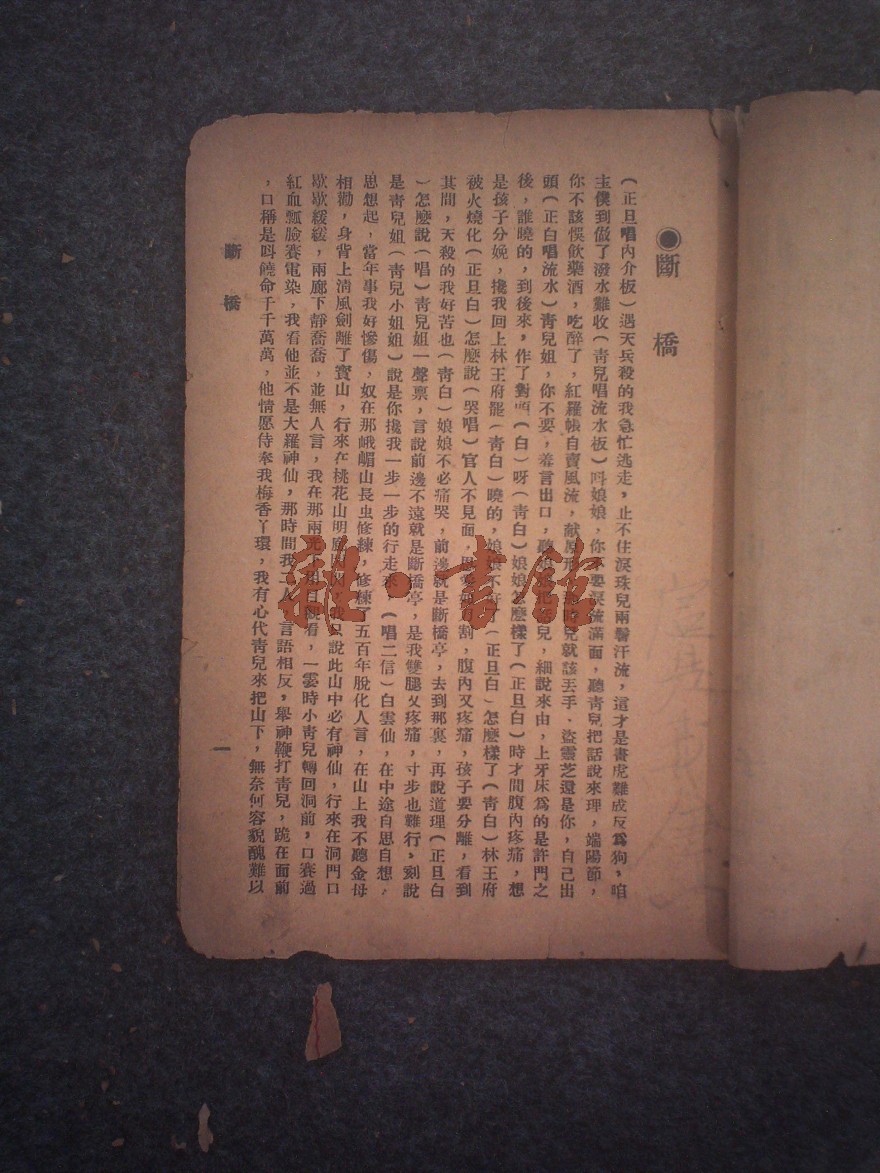 ◉斷橋
(正旦唱內介板)遇天兵殺的我急忙逃走,止不住淚珠兒兩輪汗流,這才是畫虎難成反爲狗,咱
主僕到做了潑水難收(靑兒唱流水板)呌娘娘,你不要淚流滿面,聽靑兒把話說來理,端陽節,
你不該悞飲藥酒,吃醉了,紅羅帳自賣風流,献原形 時兒就該丟手、盜靈芝還是你,自己出
頭(正白唱流水)靑兒姐,你不要,羞言出口,聽娘娘把話兒,細說來由,上牙床爲的是許門之
後,誰曉的,到後來,作了對頭(白)呀(靑白)娘娘怎麽樣了(正旦白)時才間腹內疼痛,想
是孩子分娩,攙我回上林王府罷(靑白)曉的,娘娘不好了(正旦白)怎麽樣了(靑白)林王府
被火燒化(正旦白)怎麽說(哭唱)官人不見面,思 如刀割,腹內又疼痛,孩子要分離,看到
其間,天殺的我好苦也(靑白)娘娘不必痛哭,前邊就是斷橋亭,去到那裏,再說道理(正旦白
)怎麽說(唱)靑兒姐一聲禀,言說前邊不遠就是斷橋亭,是我雙腿又疼痛,寸步也難行,刻說
是靑兒姐(靑兒小姐姐)說是你攙我一步一步的行走來(唱二信)白雲仙,在中途自思自想,
思想起,當年事我好慘傷,奴在那峨嵋山長虫修練,修棟了五百年脫化人言,在山上我不聽金母
相勸,身背上淸風劍離了寳山,行來在桃花山明 只說此山中必有神仙,行來在洞門口
歇歇緩緩,兩廊下靜喬喬,並無人言,我在那兩 觀看,一霎時小靑兒轉回洞前,口賽過
紅血瓢臉賽電染,我看他並不是大羅神仙,那時間我二人,言語相反,舉神鞭打靑兒,跪在面前
,口稱是呌饒命千千萬萬,他情愿侍奉我梅香丫環,我有心代靑兒來把山下,無奈何容貌醜難以
斷橋
一
雜·書館